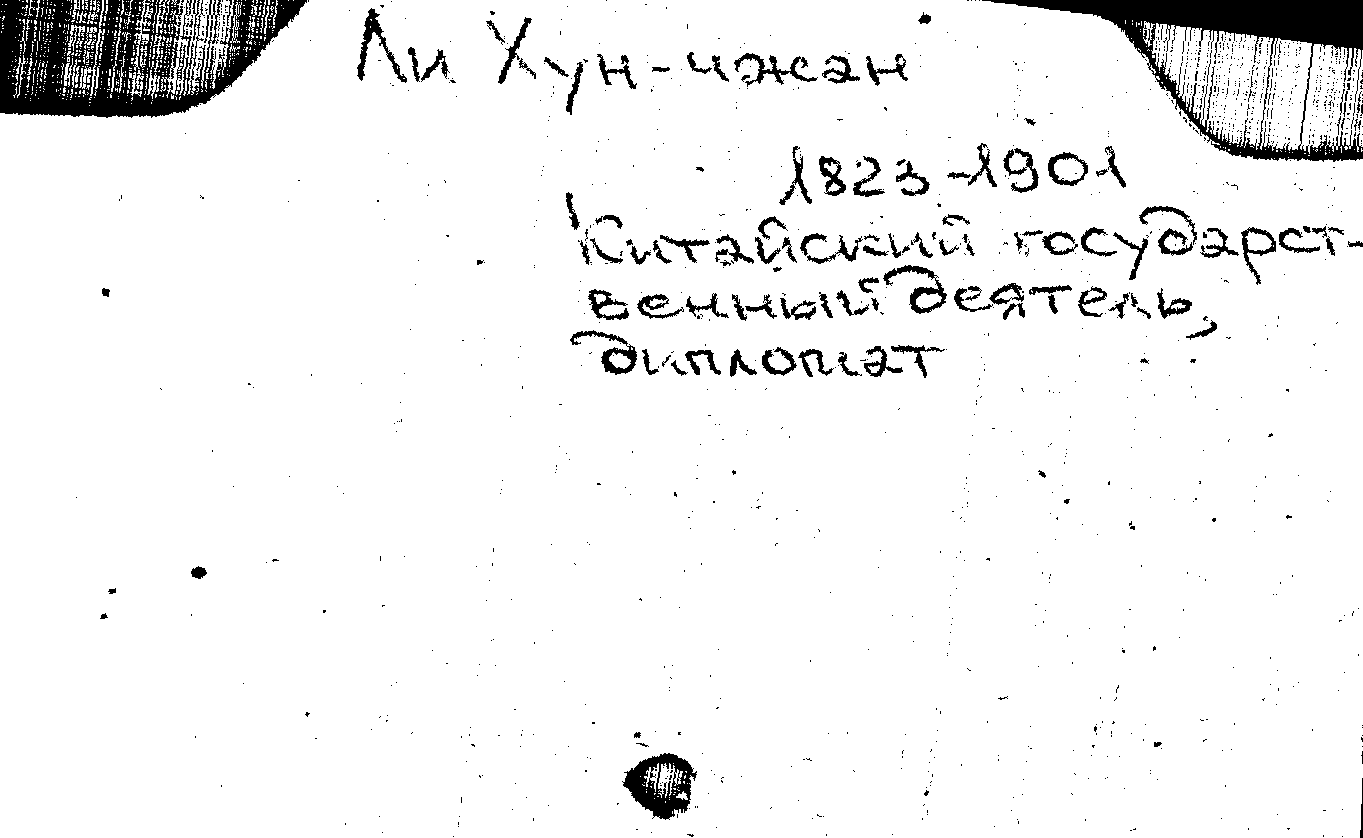 Ли Хун-чжан
1823-1901
Китайский государст-
венный деятель,
дипломат